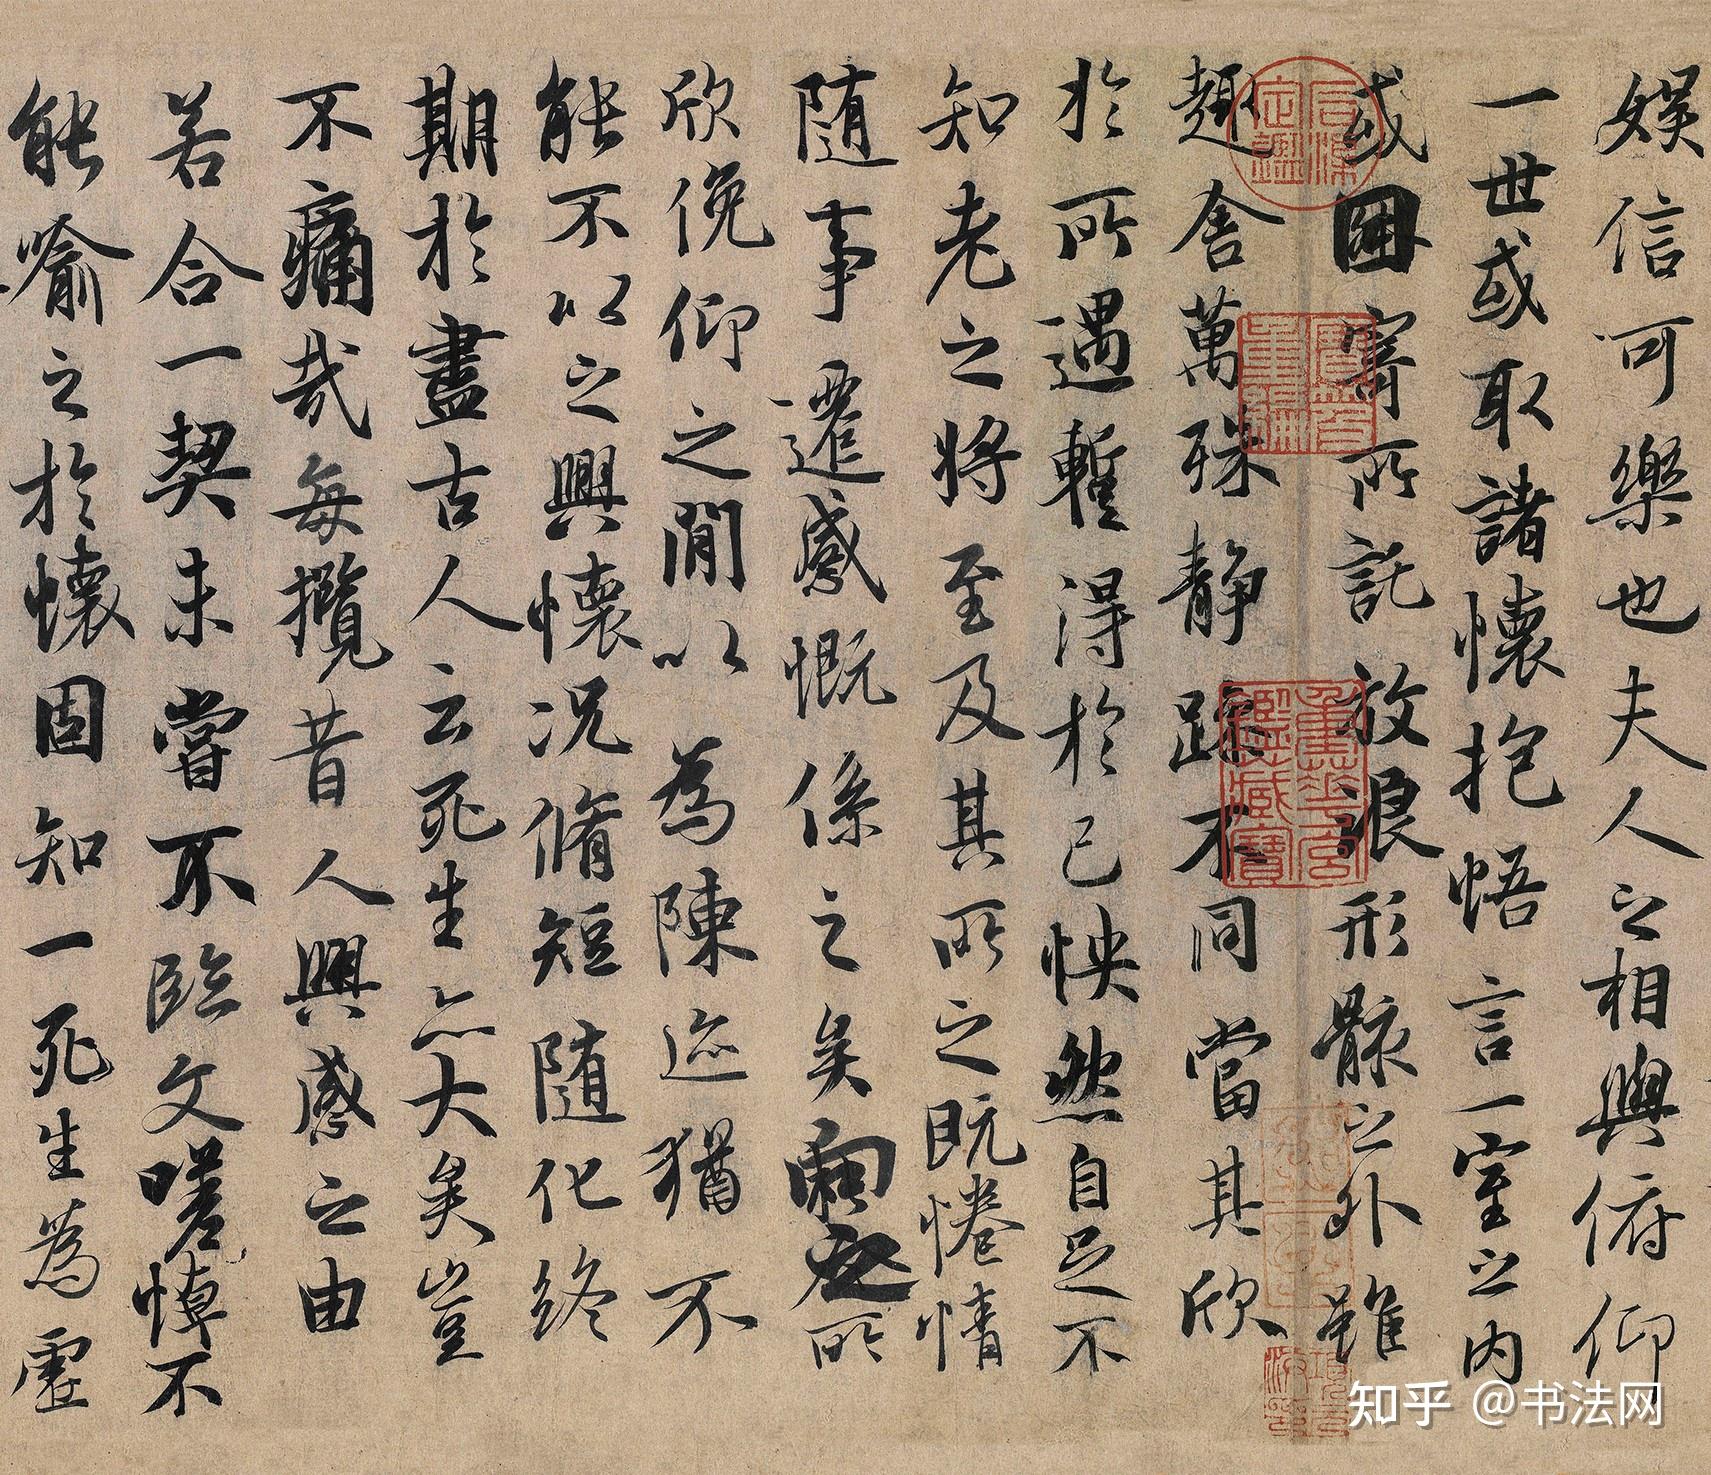 娛信可樂也夫人之相與俯仰
一世或取諸懷抱悟言一室之内
或因寄所託放浪形骸之外雖
趣舍萬殊静躁不同當其欣
於所遇蹔得於己怏然自足不
知老之將至及其所之既惓情
随事遷感慨係之矣向之所
欣俛仰之閒以為陳迹猶不
能不以之興懷况脩短随化終
期於盡古人云死生亦大矣豈
不痛哉每攬昔人興感之由
若合一契未嘗不臨文嗟悼不
能喻之於懷固知一死生為虛
石渠定鑑
寶笈重編
重華宮鑑藏寶
知乎 @书法网